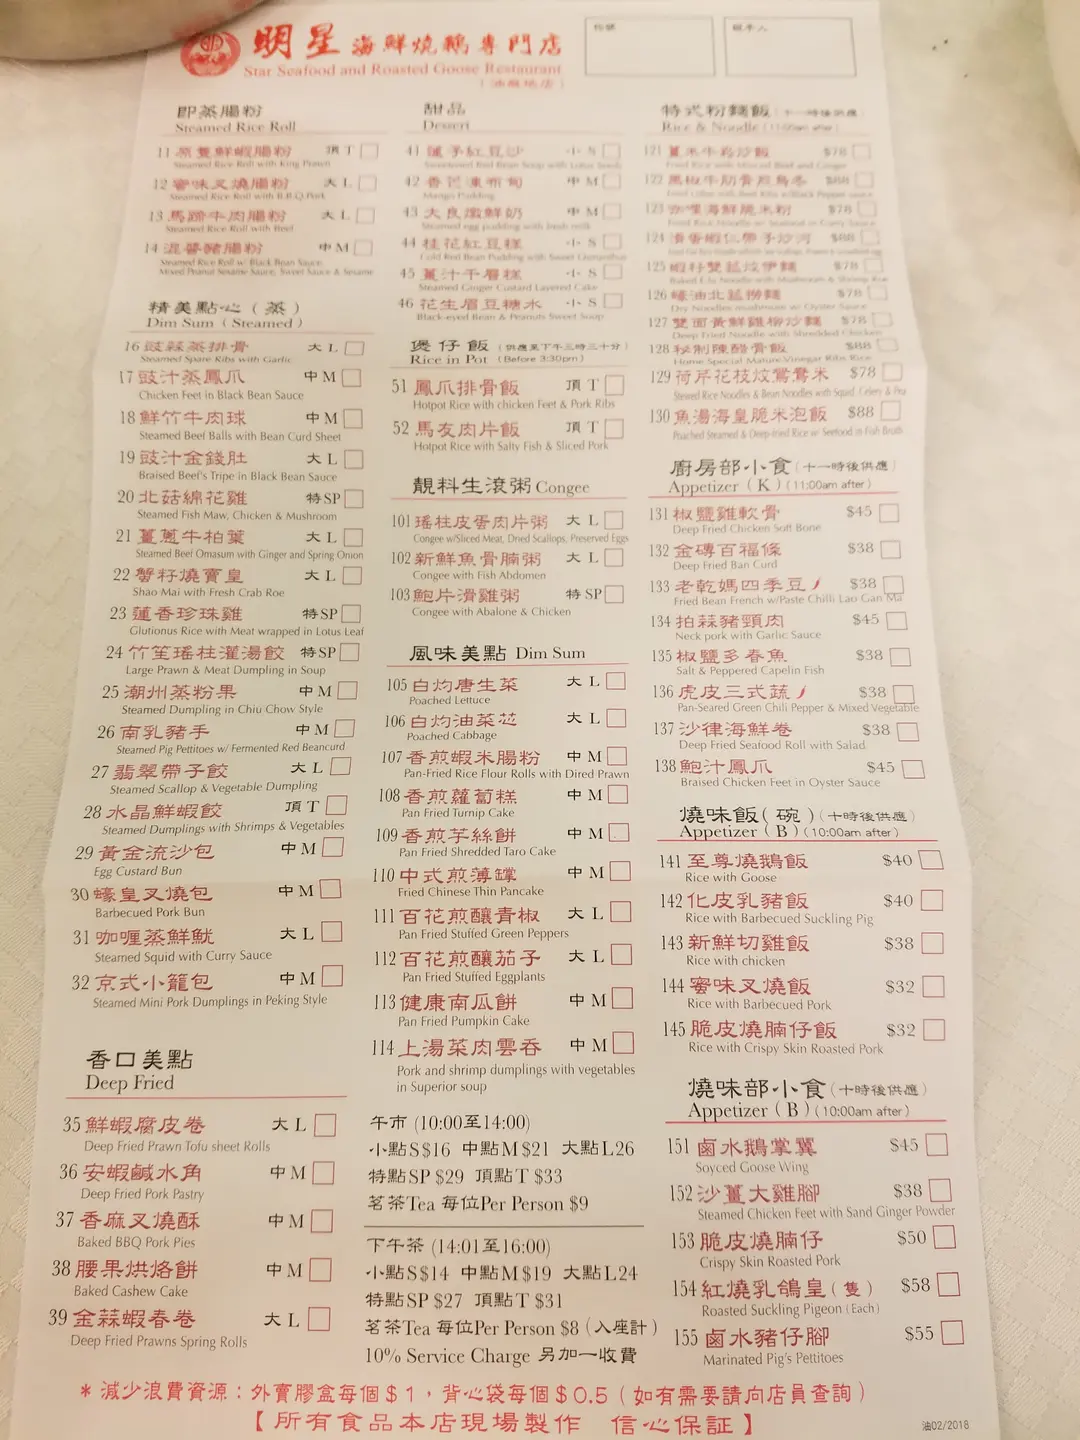 明星海鮮燒鵝專門店
Star Seafood and Roasted Goose Restaurant
(油麻地店)
枱號
經手人
即蒸腸粉
Steamed Rice Roll
11 原隻鮮蝦腸粉 頂 T
Steamed Rice Roll with King Prawn
12 蜜味叉燒腸粉 大 L
Steamed Rice Roll with B.B.Q Pork
13 馬蹄牛肉腸粉 大 L
Steamed Rice Roll with Beef
14 混醬豬腸粉 中 M
Steamed Rice Roll w/ Black Bean Sauce,
Mixed Peanut Sesame Sauce, Sweet Sauce & Sesame
精美點心(蒸)
Dim Sum (Steamed)
16 豉蒜蒸排骨 大 L
Steamed Spare Ribs with Garlic
17 豉汁蒸鳳爪 中 M
Chicken Feet in Black Bean Sauce
18 鮮竹牛肉球 中 M
Steamed Beef Balls with Bean Curd Sheet
19 豉汁金錢肚 大 L
Braised Beef's Tripe in Black Bean Sauce
20 北菇綿花雞 特 SP
Steamed Fish Maw, Chicken & Mushroom
21 薑蔥牛柏葉 大 L
Steamed Beef Omasum with Ginger and Spring Onion
22 蟹籽燒賣皇 大 L
Shao Mai with Fresh Crab Roe
23 蓮香珍珠雞 特 SP
Glutionus Rice with Meat wrapped in Lotus Leaf
24 竹笙瑤柱灌湯餃 特 SP
Large Prawn & Meat Dumpling in Soup
25 潮州蒸粉果 中 M
Steamed Dumpling in Chiu Chow Style
26 南乳豬手 中 M
Steamed Pig Pettitoes w/ Fermented Red Beancurd
27 翡翠帶子餃 大 L
Steamed Scallop & Vegetable Dumpling
28 水晶鮮蝦餃 頂 T
Steamed Dumplings with Shrimps & Vegetables
29 黃金流沙包 中 M
Egg Custard Bun
30 蠔皇叉燒包 中 M
Barbecued Pork Bun
31 咖喱蒸鮮魷 大 L
Steamed Squid with Curry Sauce
32 京式小籠包 中 M
Steamed Mini Pork Dumplings in Peking Style
香口美點
Deep Fried
35 鮮蝦腐皮卷 大 L
Deep Fried Prawn Tofu sheet Rolls
36 安蝦鹹水角 中 M
Deep Fried Pork Pastry
37 香麻叉燒酥 中 M
Baked BBQ Pork Pies
38 腰果烘烙餅 中 M
Baked Cashew Cake
39 金蒜蝦春卷 大 L
Deep Fried Prawns Spring Rolls
甜品
Dessert
41 蓮子紅豆沙 小 S
Sweetened Red Bean Soup with Lotus Seeds
42 香芒凍布甸 中 M
Mango Pudding
43 大良燉鮮奶 中 M
Steamed egg pudding with fresh milk
44 桂花紅豆糕 小 S
Cold Red Bean Pudding with Sweet Osmanthus
45 薑汁千層糕 小 S
Steamed Ginger Custard Layered Cake
46 花生眉豆糖水 小 S
Black-eyed Bean & Peanuts Sweet Soup
煲仔飯(供應至下午三時三十分)
Rice in Pot (Before 3:30pm)
51 鳳爪排骨飯 頂 T
Hotpot Rice with chicken Feet & Pork Ribs
52 馬友肉片飯 頂 T
Hotpot Rice with Salty Fish & Sliced Pork
靚料生滾粥 Congee
101 瑤柱皮蛋肉片粥 大 L
Congee w/Sliced Meat, Dried Scallops, Preserved Eggs
102 新鮮魚骨腩粥 大 L
Congee with Fish Abdomen
103 鮑片滑雞粥 特 SP
Congee with Abalone & Chicken
風味美點 Dim Sum
105 白灼唐生菜 大 L
Poached Lettuce
106 白灼油菜芯 大 L
Poached Cabbage
107 香煎蝦米腸粉 中 M
Pan-Fried Rice Flour Rolls with Dired Prawn
108 香煎蘿蔔糕 中 M
Pan Fried Turnip Cake
109 香煎芋絲餅 中 M
Pan Fried Shredded Taro Cake
110 中式煎薄罉 中 M
Fried Chinese Thin Pancake
111 百花煎釀青椒 大 L
Pan Fried Stuffed Green Peppers
112 百花煎釀茄子 大 L
Pan Fried Stuffed Eggplants
113 健康南瓜餅 中 M
Pan Fried Pumpkin Cake
114 上湯菜肉雲吞 中 M
Pork and shrimp dumplings with vegetables
in Superior soup
午市 (10:00至14:00)
小點S$16 中點M $21 大點L26
特點SP $29 頂點T $33
茗茶Tea 每位Per Person $9
下午茶 (14:01至16:00)
小點S$14 中點M $19 大點L24
特點SP $27 頂點T $31
茗茶Tea 每位Per Person $8 (入座計)
10% Service Charge 另加一收費
特式粉麵飯(十一時後供應)
Rice & Noodle (11:00am after)
121 薑米牛崧炒飯 $78
Fried Rice with Minced Beef and Ginger
122 黑椒牛肋骨煎烏冬 $88
123 咖喱海鮮脆米粉 $78
124 滑蛋蝦仁帶子炒河 $88
125 蝦籽雙菇炆伊麵 $78
Baked E-fu Noodle with Mushroom & Shrimp Roe
126 蠔油北菇撈麵 $78
Dry Noodles mushroom w/ Oyster Sauce
127 雙面黃鮮雞柳炒麵 $78
Deep Fried Noodle with Shredded Chicken
128 秘制陳醋骨飯 $88
Home Special Mature Vinegar Ribs Rice
129 荷芹花枝炆鴛鴦米 $78
Stewed Rice Noodles & Bean Noodles with Squid, Celery & Pea
130 魚湯海皇脆米泡飯 $88
Poached Steamed & Deep-fried Rice w/ Seefood in Fish Broth
廚房部小食(十一時後供應)
Appetizer (K) (11:00am after)
131 椒鹽雞軟骨 $45
Deep Fried Chicken Soft Bone
132 金磚百福條 $38
Deep Fried Ban Curd
133 老乾媽四季豆 $38
Fried Bean French w/Paste Chilli Lao Gan Ma
134 拍蒜豬頸肉 $45
Neck pork with Garlic Sauce
135 椒鹽多春魚 $38
Salt & Peppered Capelin Fish
136 虎皮三式蔬 $38
Pan-Seared Green Chili Pepper & Mixed Vegetable
137 沙律海鮮卷 $38
Deep Fried Seafood Roll with Salad
138 鮑汁鳳爪 $45
Braised Chicken Feet in Oyster Sauce
燒味飯(碗)(十時後供應)
Appetizer (B) (10:00am after)
141 至尊燒鵝飯 $40
Rice with Goose
142 化皮乳豬飯 $40
Rice with Barbecued Suckling Pig
143 新鮮切雞飯 $38
Rice with chicken
144 蜜味叉燒飯 $32
Rice with Barbecued Pork
145 脆皮燒腩仔飯 $32
Rice with Crispy Skin Roasted Pork
燒味部小食(十時後供應)
Appetizer (B) (10:00am after)
151 鹵水鵝掌翼 $45
Soyced Goose Wing
152 沙薑大雞腳 $38
Steamed Chicken Feet with Sand Ginger Powder
153 脆皮燒腩仔 $50
Crispy Skin Roasted Pork
154 紅燒乳鴿皇(隻) $58
Roasted Suckling Pigeon (Each)
155 鹵水豬仔腳 $55
Marinated Pig's Pettitoes
* 減少浪費資源：外賣膠盒每個$1，背心袋每個$0.5(如有需要請向店員查詢)
【所有食品本店現場製作 信心保証】
油02/2018